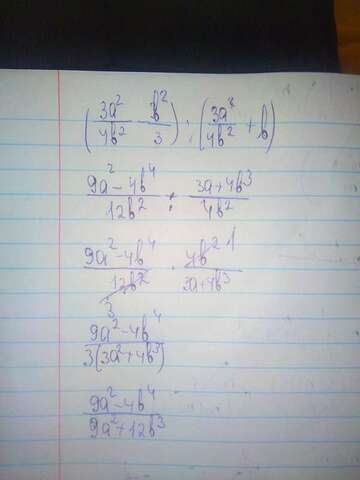 (3a²/4b² - b²/3) : (3a²/4b² + b)
9a² - 4b⁴/12b² : 3a + 4b³/4b²
9a² - 4b⁴/12b² · 4b² 1/3a + 4b³
3
9a² - 4b⁴/3(3a² + 4b³)
9a² - 4b⁴/9a² + 12b³